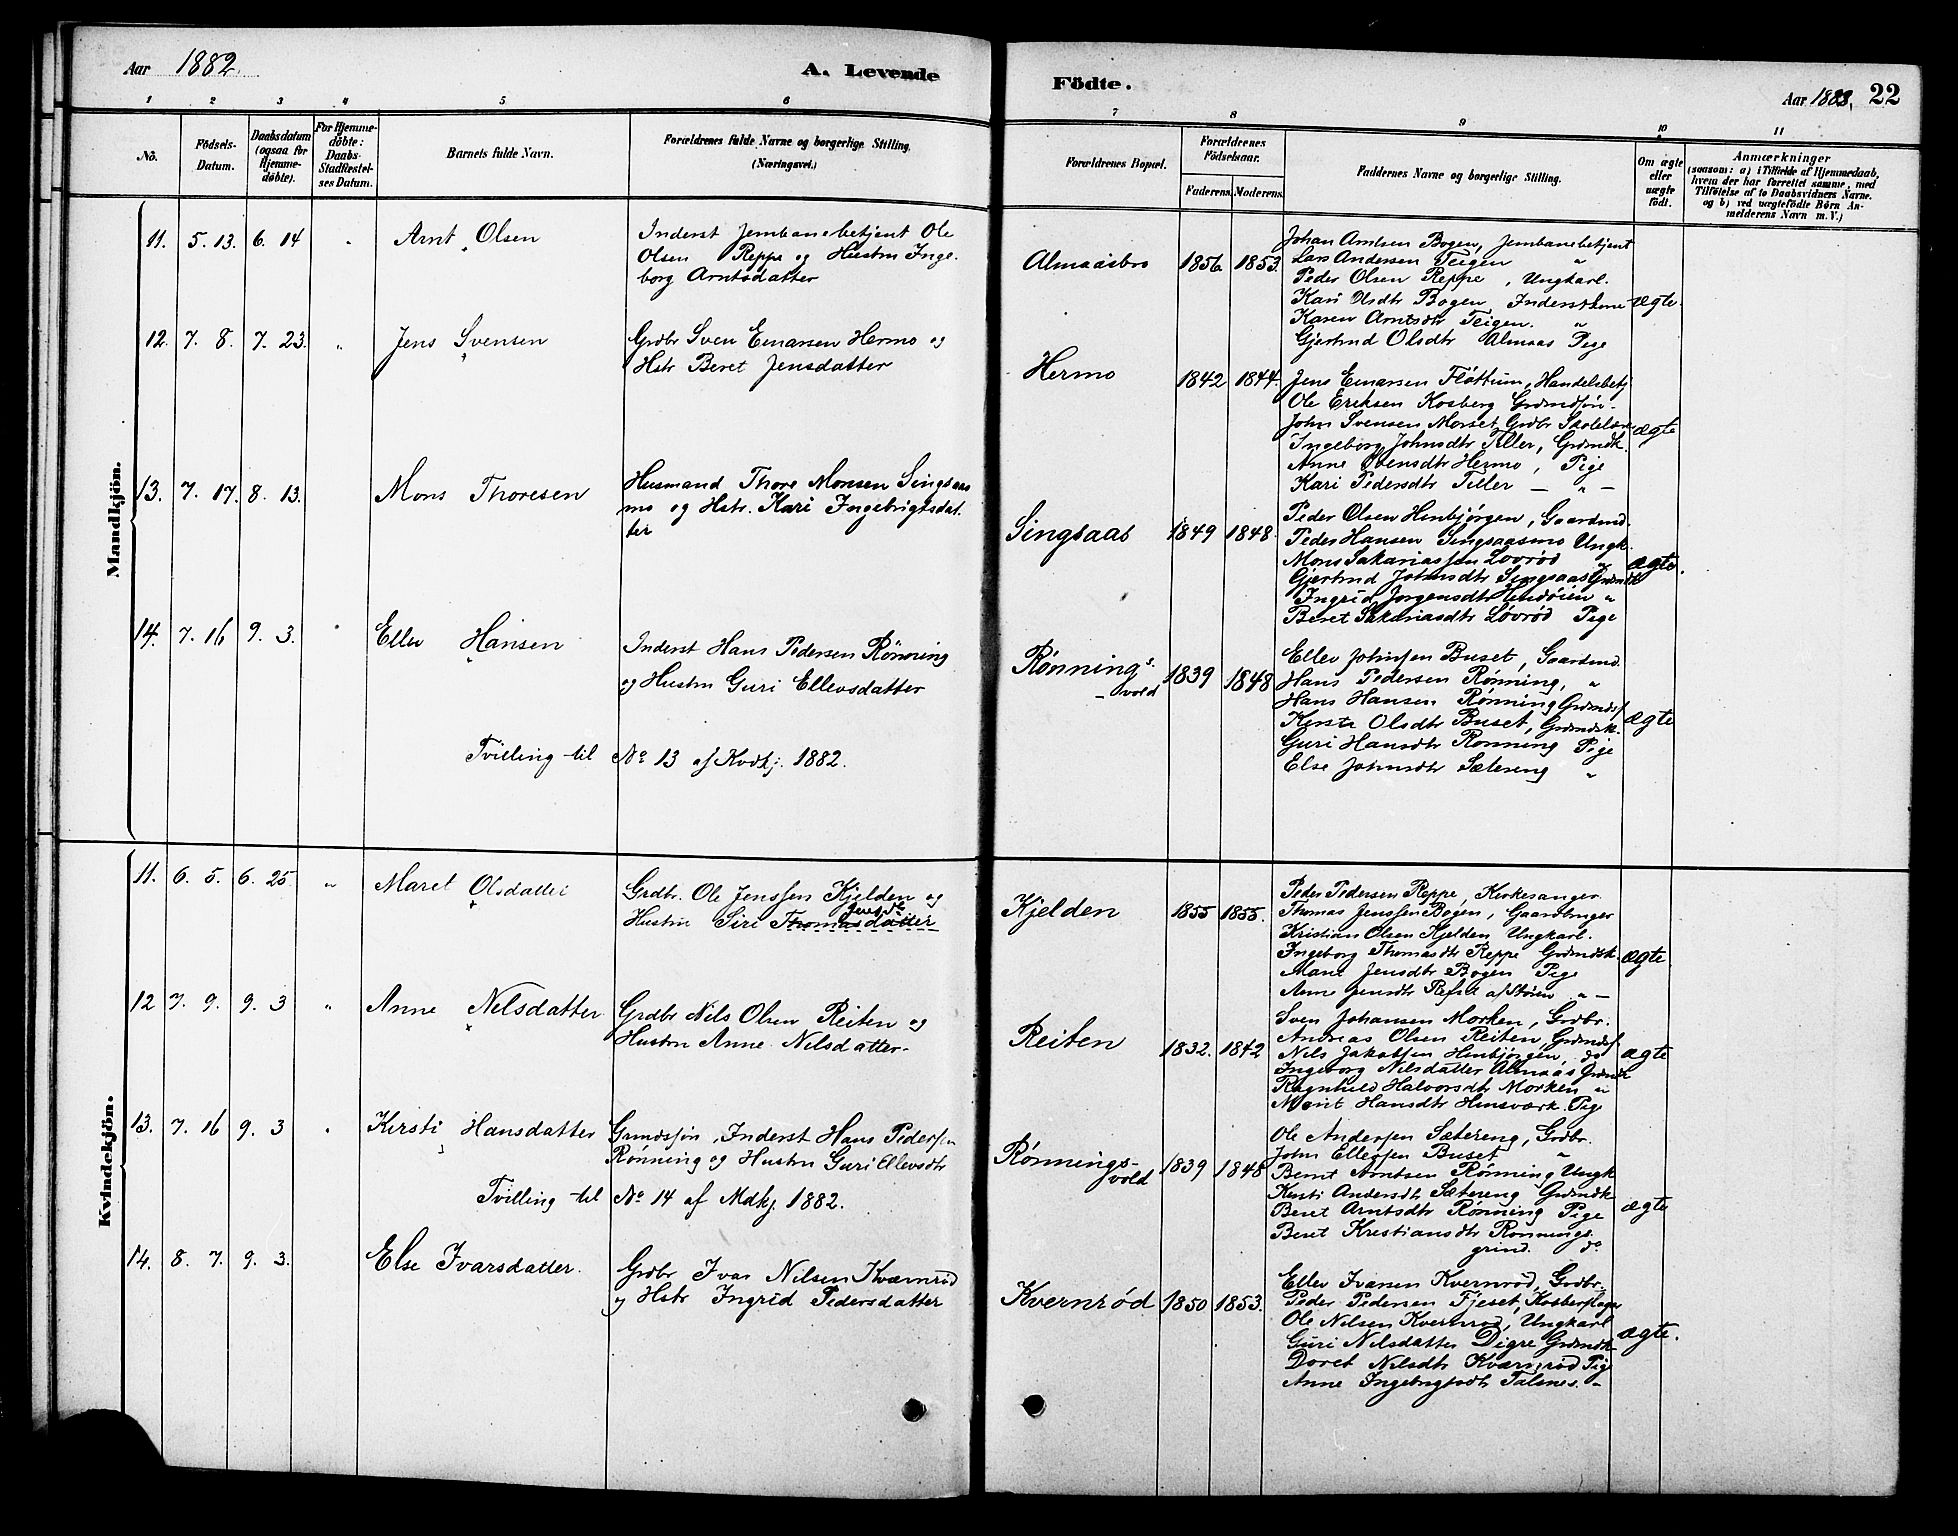 Aar 1882.
A. Levende
1 2 3 4 5 6
No.
Födsels-Datum.
Daabsdatum (ogsaa for Hjemme-døbte).
For Hjemme-døbte: Daabs-Stadfæstel-ses Datum.
Barnets fulde Navn.
Forældrenes fulde Navne og borgerlige Stilling. (Næringsvei.)
Mandkjön.
11. 5. 13. 6. 14 " Arnt Olsen Inderst Jernbanebetjent Ole
Olsen Reppe og Hustru Inge-
borg Arntsdatter
12. 7. 8. 7. 23. " Jens Svensen Grdbr Sven Emarsen Hermo og
Hstr Beret Jensdatter
13. 7. 17. 8. 13. Mons Thoresen Husmand Thore Monsen Singsaas
mo og Hstr. Kari Ingebrigtsdat-
ter
14. 7. 16 9. 3. " Ellev Hansen Inderst Hans Pedersen Rønning
og Hustru Guri Ellevsdatter
Tvilling til No 13 af Kvdkj. 1882.
Kvindekjön.
11. 6. 5. 6. 25. " Maret Olsdatter Grdbr. Ole Jenssen Kjelden og
Jensdtr
Hustru Siri Thomasdatter
12 7. 9. 9. 3 " Anne Nelsdatter Grdbr Nils Olsen Reiten og
Hustru Anne Nilsdatter.
13. 7. 16 9. 3 " Kirsti Hansdatter Grmdssøn, Inderst Hans Pedersen
Rønning og Hustru Guri Ellevsdtr
Tvilling til No 14 af Mdkj. 1882.
14. 8. 7. 9. 3. Else Ivarsdatter. Grdbr Ivar Nilsen Kværnrød
og Hstr Ingrid Pedersdatter
Födte.
Aar 1882. 22
7 8 9 10 11
Forældrenes Bopæl.
Forældrenes Födselsaar.
Faderens. Moderens.
Faddernes Navne og borgerlige Stilling.
Om ægte eller uægte födt.
Anmærkninger
(saasom: a) i Tilfælde af Hjemmedaab,
hvem der har forrettet samme, med
Tilföielse af to Daabsvidners Navne.
og b) ved uægtefödte Börn An-
melderens Navn m. V.)
Almaasbro 1856. 1853. ægte.
Johan Arntsen Bogen, Jernbanebetjent
Lars Andersen Teigen "
Peder Olsen Reppe, Ungkarl.
Kari Olsdtr Bogen Inderstkone
Karen Arntsdtr Teigen. "
Gjertrud Olsdtr Almaas Pige
Hermo 1842 1844. ægte
Jens Emarsen Fløttum, Handelsbetj
Ole Eriksen Kosberg Grdmdsøn.
John Svensen Morset Grdbr Skolelærer
Ingeborg Johnsdtr Aller, Grdmdk.
Anne Svensdtr Hermo, Pige
Kari Pedersdtr Tiller — " —
Singsaas 1849 1848. ægte.
Peder Olsen Henbjørgen, Gaardmd.
Peder Hansen Singsaasmo Ungk.
Mons Sakariassen Løvrød "
Gjertrud Johnsdtr Singsaas Grdmdk
Ingrid Jørgensdtr "
Beret Sakariasdtr Løvrød Pige
Rønnings-
vold 1839 1848 ægte
Ellev Johnsen Buset, Gaardmd.
Hans Pedersen Rønning, "
Hans Hansen Rønning Grdmds.
Kirsti Olsdtr Buset, Grdmdsk.
Guri Hansdtr Rønning Pige
Else Johnsdtr Sætereng "
Kjelden 1855 1855. ægte
Peder Pedersen Reppe, Kirkesanger
Thomas Jenssen Bogen, Gaardbruger
Kristian Olsen Kjelden Ungkarl.
Ingeborg Thomasdtr Reppe Grdmdsk.
Mari Jensdtr Bogen Pige
Anne Jensdtr af Støren " —
Reiten 1832. 1842 ægte
Sven Johansen Morken, Grdbr.
Andreas Olsen Reiten, Grdmds.
Nils Jakobsen Henbjørgen, do
Ingeborg Nilsdatter Almaas Grdmdk
Ragnhild Halvorsdtr Morken "
Marit Hansdtr Hensværk. Pige
Rønnings-
vold 1839 1848 ægte
Ole Andersen Sætereng, Grdbr.
John Ellevsen Buset "
Bernt Arntsen Rønning Ungk
Kirsti Andersdtr Sætereng Grdmdk
Beret Arntsdtr Rønning Pige
Beret Kristiansdtr Rønnings-
grind. do
Kvernrød 1850 1853. ægte.
Ellev Ivarsen Kvernrød, Grdbr.
Peder Pedersen Fjeset,
Ole Nilsen Kvernrød, Ungkarl
Guri Nilsdatter Digre Grdmdk
Doret Nilsdtr Kværnrød Pige
Anne Ingebrigtsdtr Talsnes. "